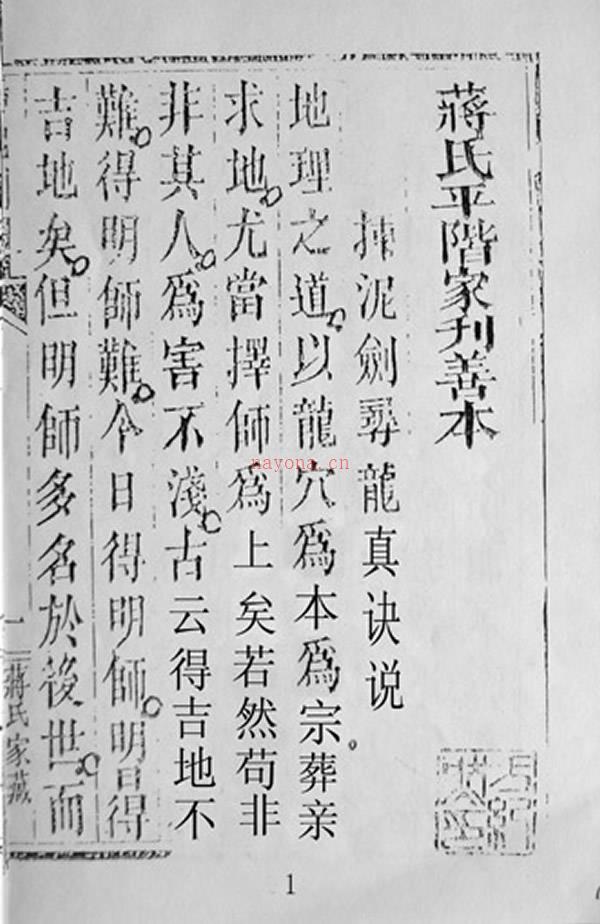 蔣氏平階家刊善本
揀泥劍尋龍真诀说
地理之道。以龍穴爲本爲宗。葬亲
求地。尤當擇師爲上矣若然苟非
非其人。爲害不淺。古云得吉地不
難。得明師難。今日得明師。明得
吉地矣。但明師多名於後世。而
一
蔣氏家藏
1
nayona.cn